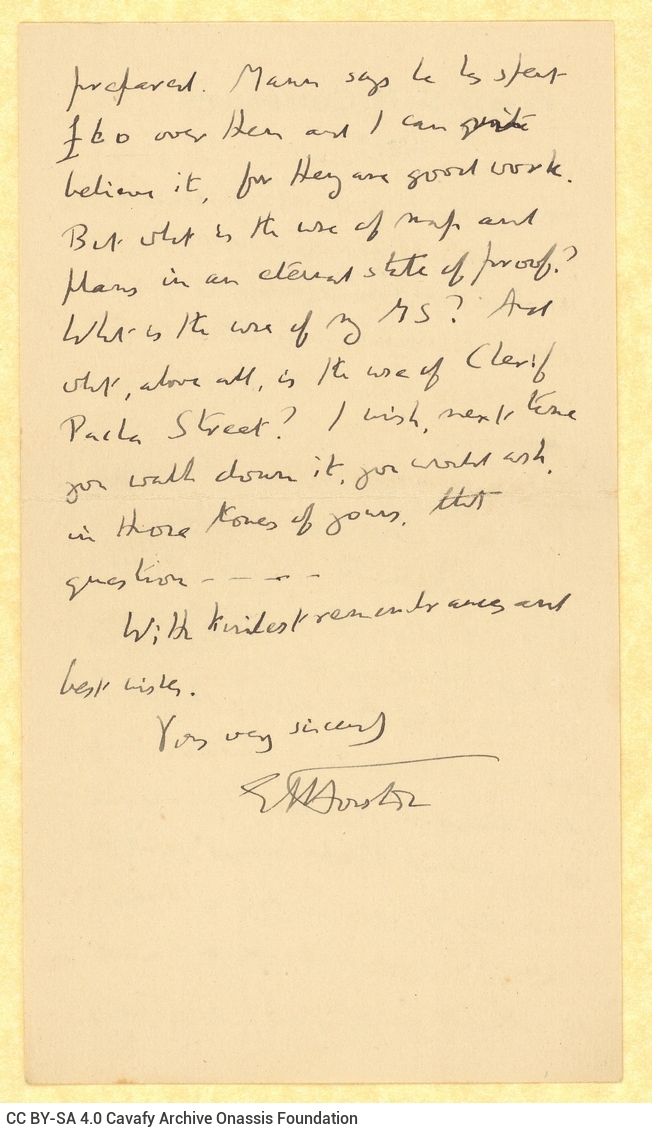 prepared. Mann says he has spent
£60 over them and I can quite
believe it, for they are good work.
But what is the use of maps and
plans in an eternal state of proof?
What is the use of my MS? And
what, above all, is the use of Cherif
Pacha Street? I wish, next time
you walk down it, you would ask,
in those tones of yours, that
question - - - - -
With kindest remembrances and
best wishes.
Yours very sincerely
EMForster
CC BY-SA 4.0 Cavafy Archive Onassis Foundation